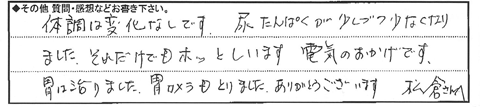 ◆その他 質問・感想などお書き下さい。
体調は変化なしです。尿たんぱくが少しづつ少なくなり
ました。それだけでもホッとしいます 電気のおかげです。
胃は治りました。胃カメラもとりました。ありがとうございます 松倉さんへ